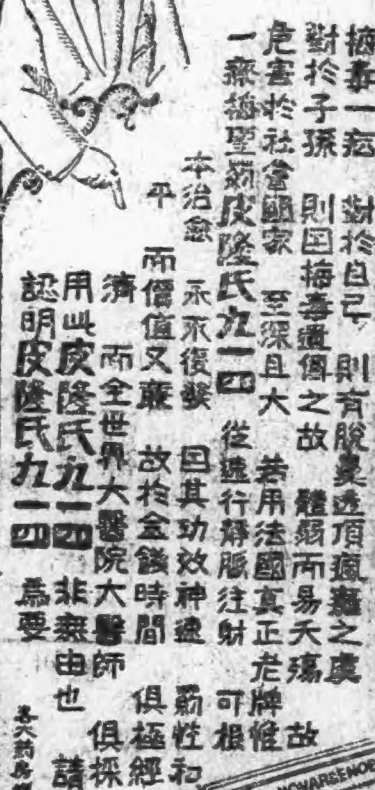 梅毒一症 對於自己 則有脫鼻透頂瘋癱之虞
對於子孫 則因梅毒遺傳之故 體弱而易夭殤 故
危害於社會國家 至深且大 若用法國真正老牌惟
一療梅聖藥皮隆氏九一四 從速行靜脈注射 可根
本治愈 永不復發 因其功效神速 藥性和
平 而價值又廉 故於金錢時間 俱極經
濟 而全世界大醫院大醫師 俱採
用此皮隆氏九一四 非無由也 請
認明皮隆氏九一四 為要
各大药房
NOVARSENOB